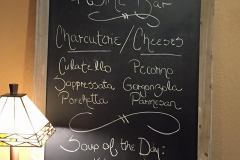 Wine Bar
Charcuterie/Cheeses
Culatello Pecorino
Soppressata Gorgonzola
Porchetta Parmesan
Soup of the Day: